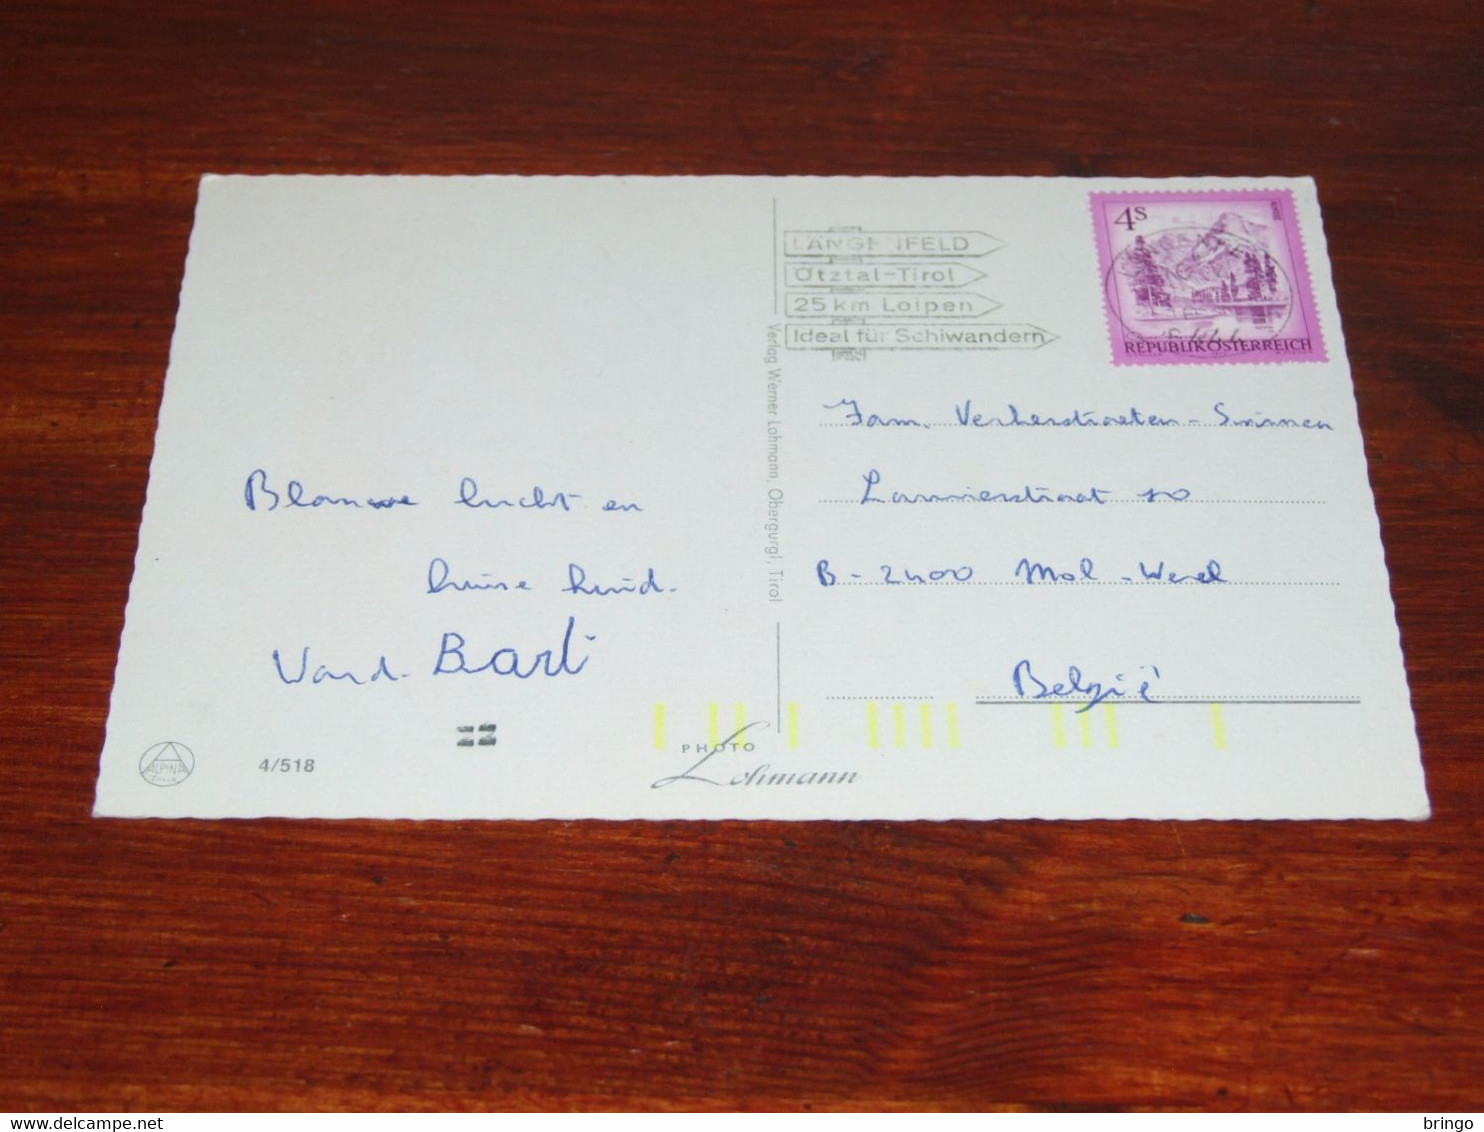 LÄNGENFELD
Ötztal-Tirol
25 km Loipen
Ideal für Schiwandern
4S
REPUBLIK ÖSTERREICH
Fam. Verherstraeten - Swinnen
10
B-2400 Mol-Wezel
België
Blauwe lucht en
huid.
Bart
Verlag Werner Lohmann, Obergurgl, Tirol
ALPINA
4/518
PHOTO
Lohmann
delcampe.net
bringo